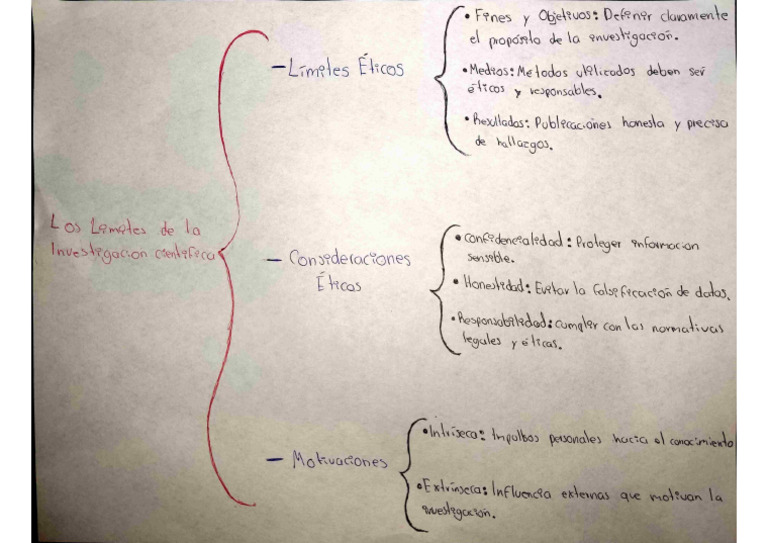 Los Límites de la
Investigación científica
– Límites Éticos
• Fines y Objetivos: Definir claramente
el propósito de la investigación.
• Medios: Métodos utilizados deben ser
éticos y responsables.
• Resultados: Publicaciones honesta y precisa
de hallazgos.
– Consideraciones
Éticas
• Confidencialidad: Proteger información
sensible.
• Honestidad: Evitar la falsificación de datos.
• Responsabilidad: Cumplir con las normativas
legales y éticas.
– Motivaciones
• Intríseca: Impulsos personales hacia el conocimiento
• Extrínseca: Influencia externas que motivan la
investigación.